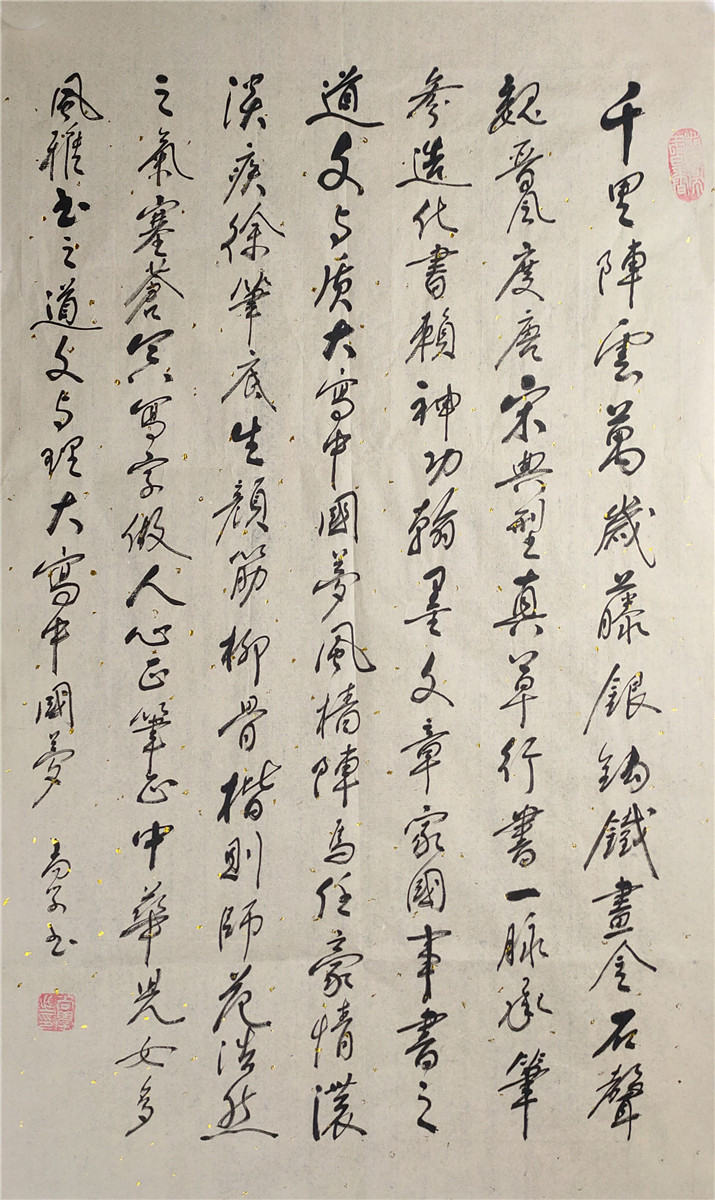 千里陣雲萬歲藤銀鈎鐵畫金石聲
魏晉風度唐宋典型真草行書一脉承筆
參造化書賴神功翰墨文章家國事書之
道文与质大寫中國夢風檣陣馬任豪情濃
淡疾徐筆底生顏筋柳骨楷则師范浩然
之氣塞蒼冥寫字做人心正筆正中華兒女多
風雅书之道文与理大寫中國夢
书